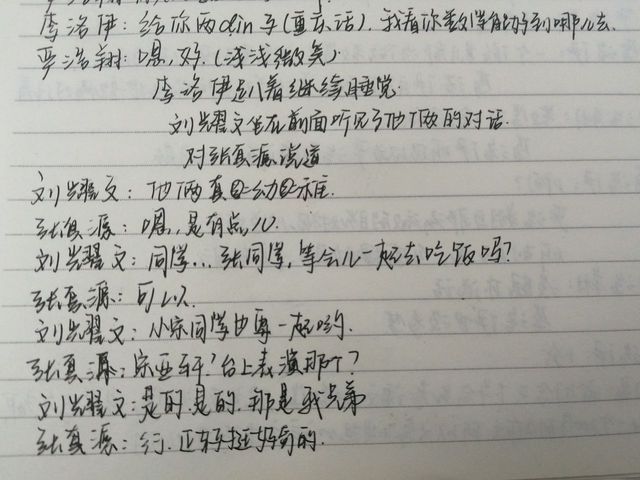 李洛伊：给你两din子(重庆话)，我看你数学能好到哪儿去.
严浩翔：嗯，好.(浅浅微笑)
李洛伊趴着继续睡觉.
刘耀文坐在前面听见了他俩的对话.
对张真源说道
刘耀文：他俩真是幼稚.
张真源：嗯，是有点儿.
刘耀文：同学...张同学，等会儿一起去吃饭吗？
张真源：可以.
刘耀文：小宋同学也要一起哟.
张真源：宋亚轩？台上表演那个？
刘耀文：是的是的.那是我兄弟
张真源：行.正好挺好奇的.